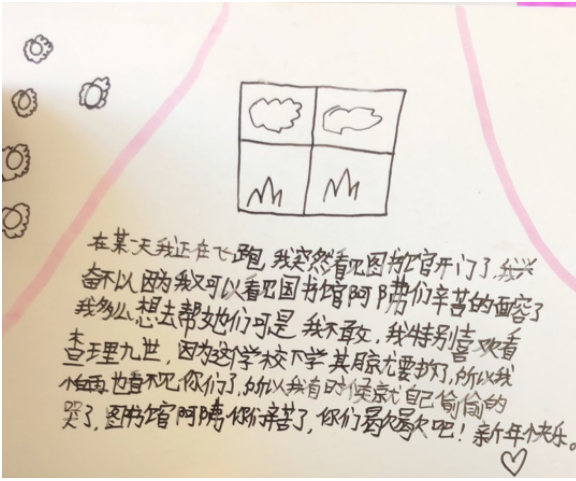 在某一天我正在飞跑,我突然看见图书馆官开门了,我兴
奋不以因为我又可以看见国书馆阿隋们辛苦的面容了
我多么想去帮她们可是我不敢,我特别喜欢看
查理九世,因为这个学校下学其月京尤要拆了,所以我
怕再也看不见你们了,所以我有时候就自己偷偷的
哭了,图书馆阿隋你们辛苦了,你们曷欠曷欠吧!新年快乐。